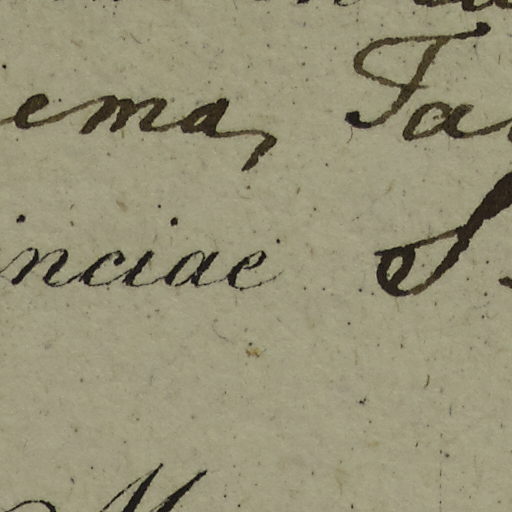 ema, Ta
inciae S
M